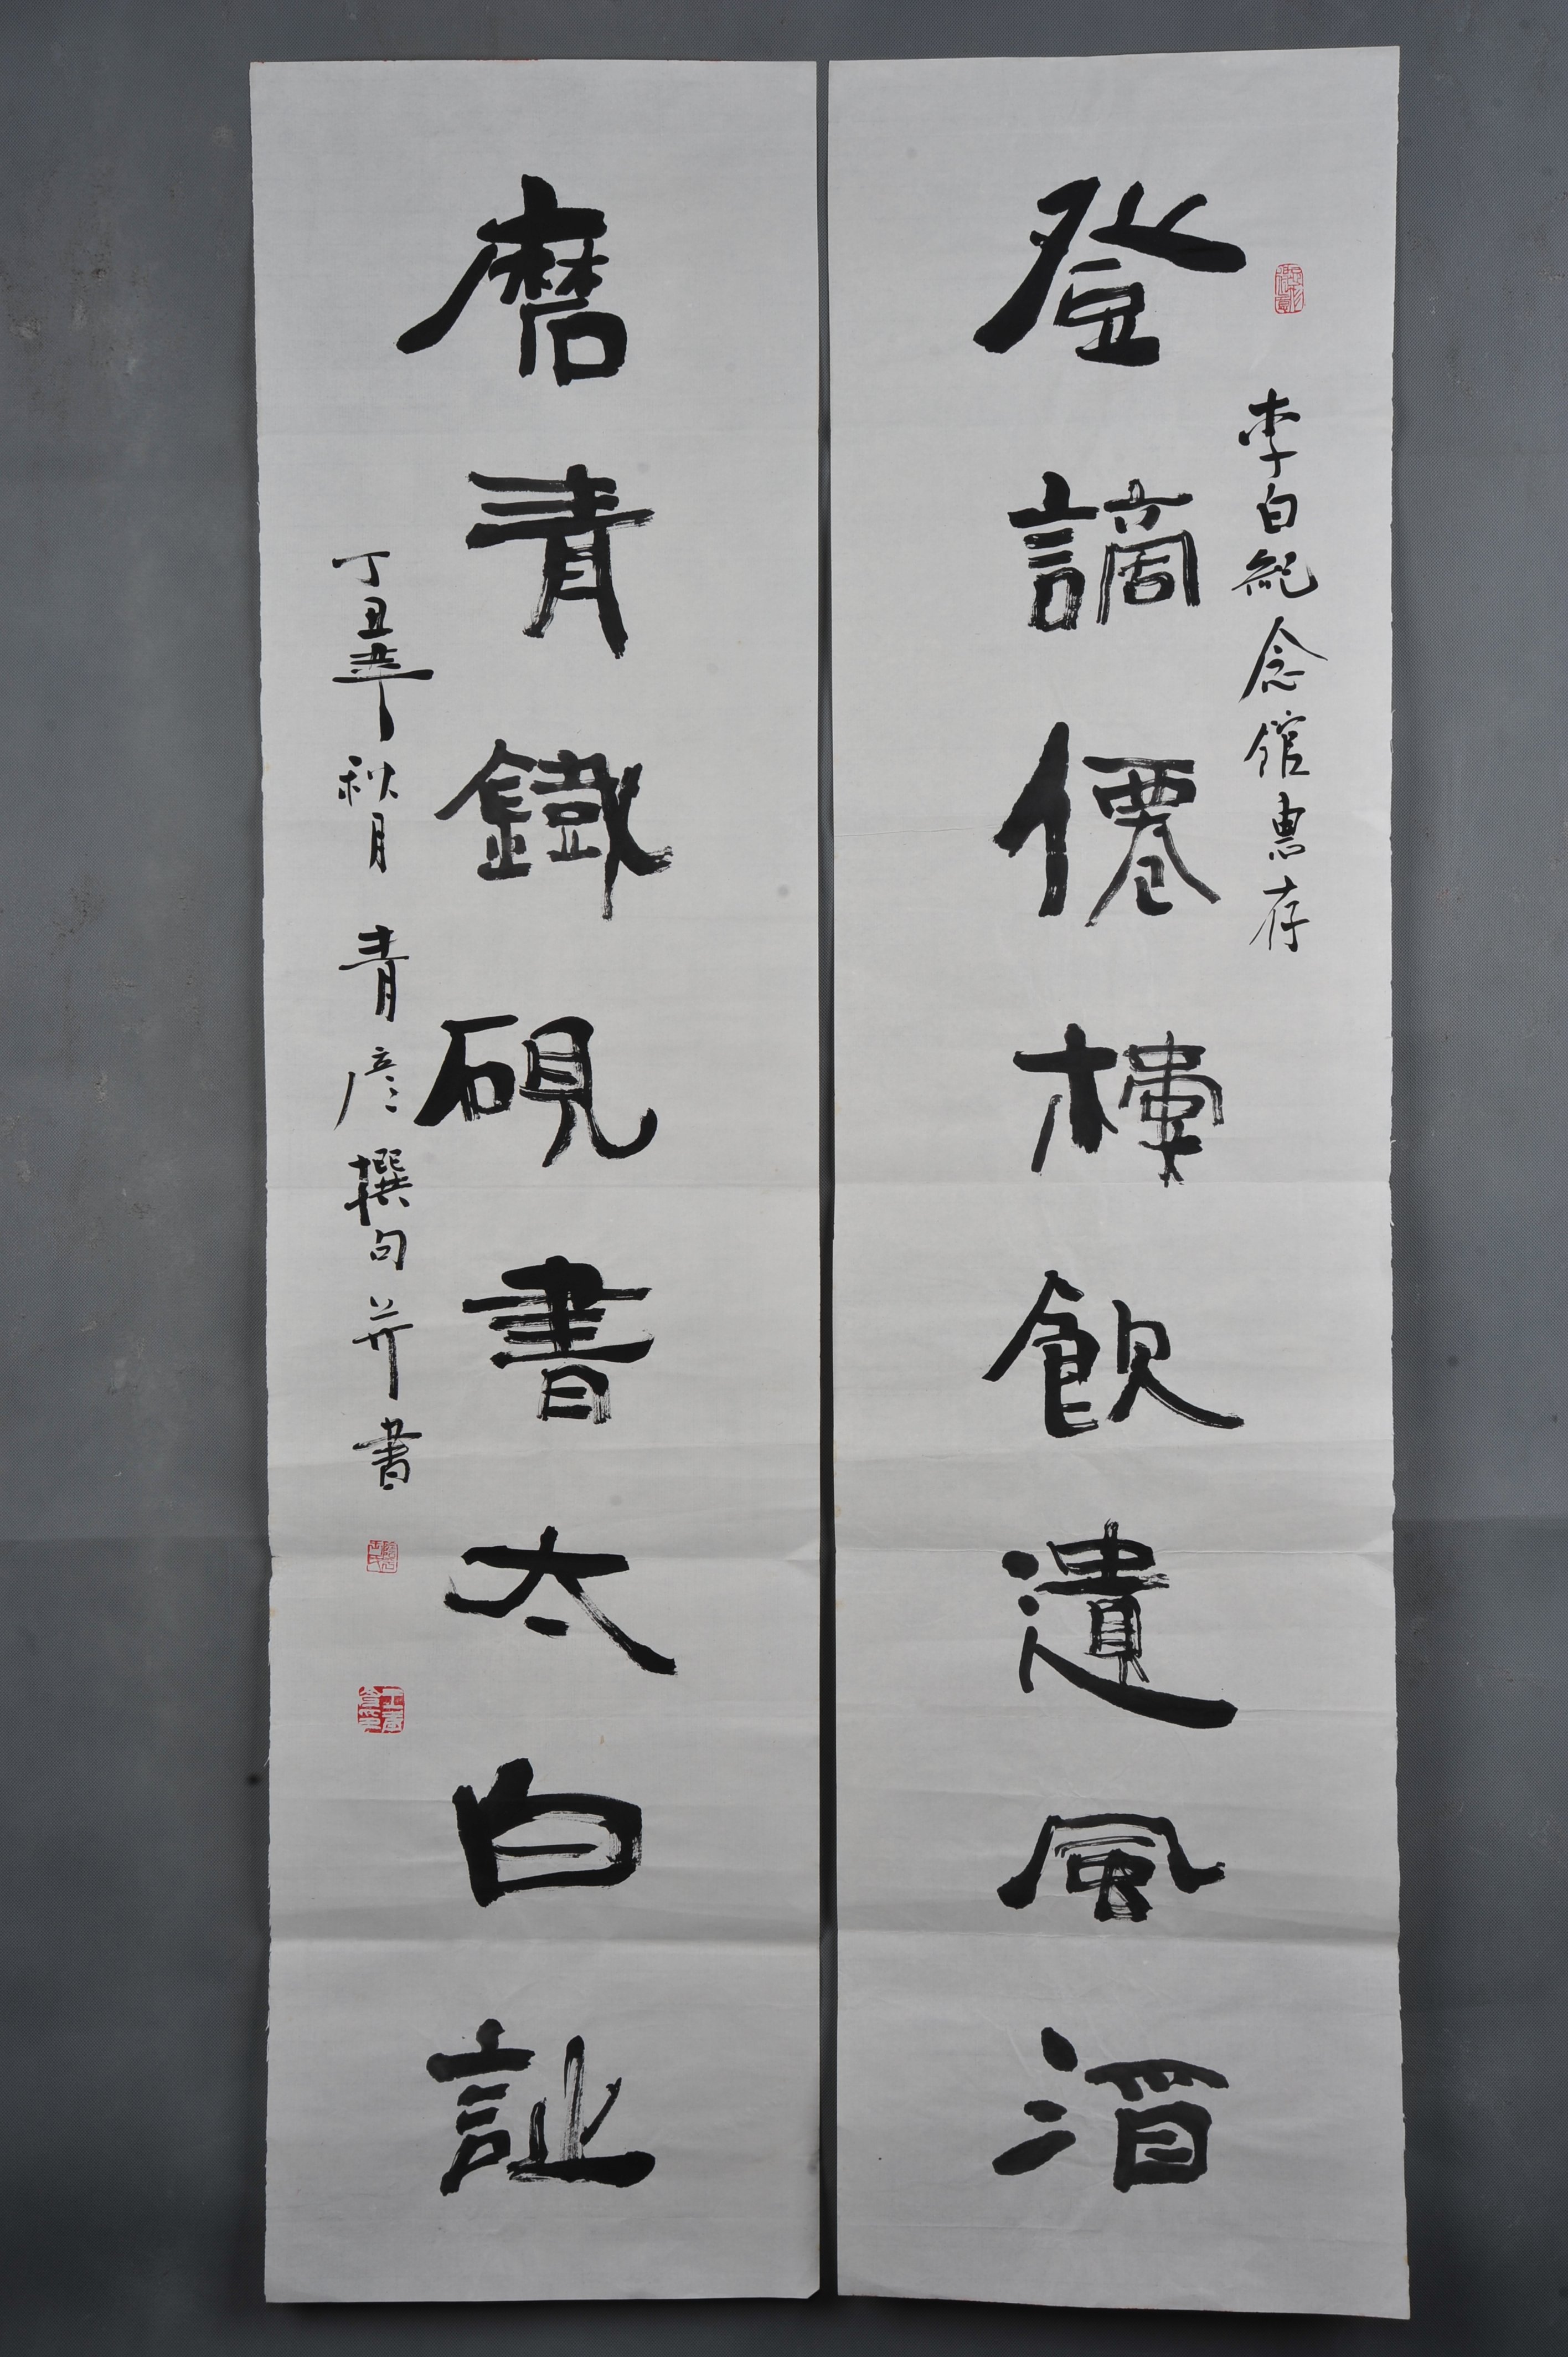 李白紀念館惠存
登謫僊樓飲遺風酒
磨青鐵硯書太白詩
丁丑年秋月青彦撰句并書